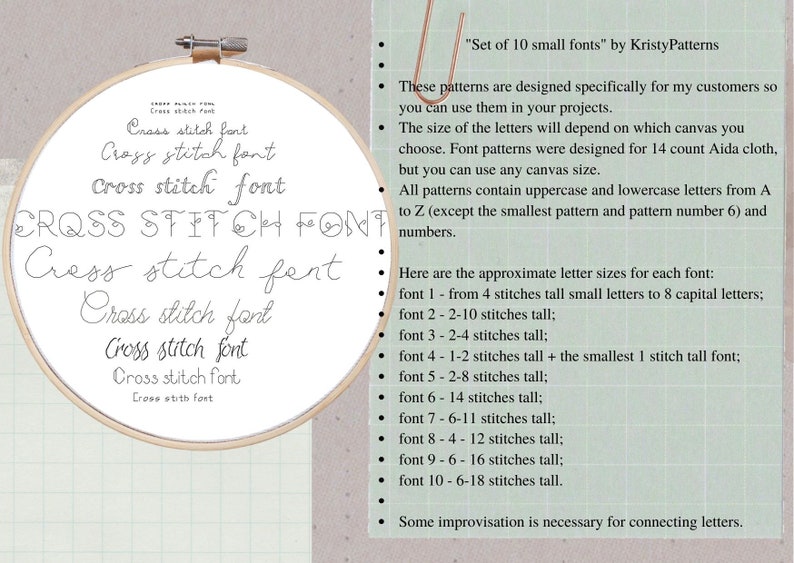 CROSS STITCH FONT
Cross stitch font
Cross stitch font
Cross stitch font
Cross stitch font
CROSS STITCH FONT
Cross stitch font
Cross stitch font
Cross stitch font
Cross stitch font
Cross stith font
"Set of 10 small fonts" by KristyPatterns
These patterns are designed specifically for my customers so
you can use them in your projects.
The size of the letters will depend on which canvas you
choose. Font patterns were designed for 14 count Aida cloth,
but you can use any canvas size.
All patterns contain uppercase and lowercase letters from A
to Z (except the smallest pattern and pattern number 6) and
numbers.
Here are the approximate letter sizes for each font:
font 1 - from 4 stitches tall small letters to 8 capital letters;
font 2 - 2-10 stitches tall;
font 3 - 2-4 stitches tall;
font 4 - 1-2 stitches tall + the smallest 1 stitch tall font;
font 5 - 2-8 stitches tall;
font 6 - 14 stitches tall;
font 7 - 6-11 stitches tall;
font 8 - 4 - 12 stitches tall;
font 9 - 6 - 16 stitches tall;
font 10 - 6-18 stitches tall.
Some improvisation is necessary for connecting letters.